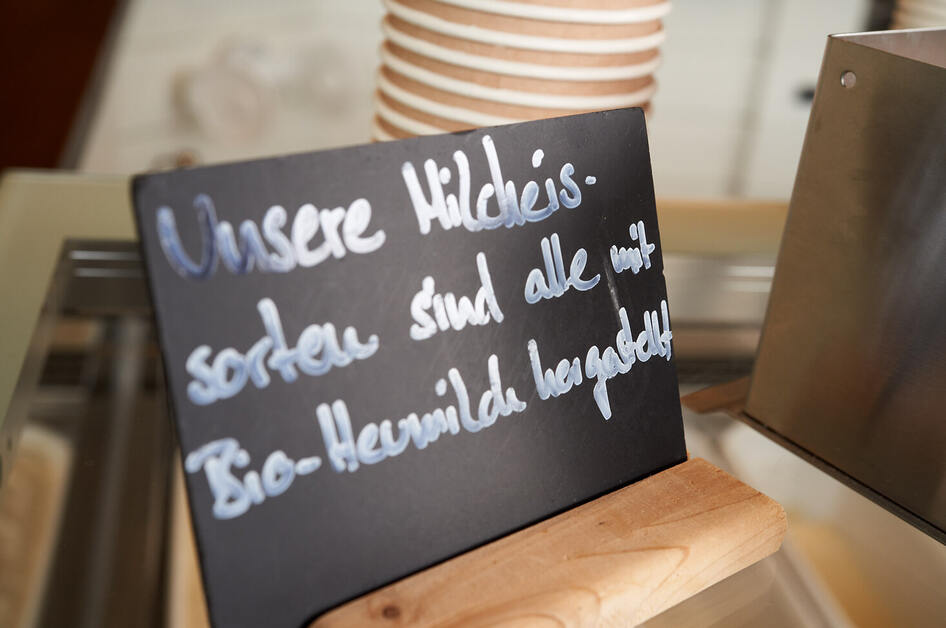 Unsere Milcheis-
sorten sind alle mit
Bio-Heumilch hergestellt